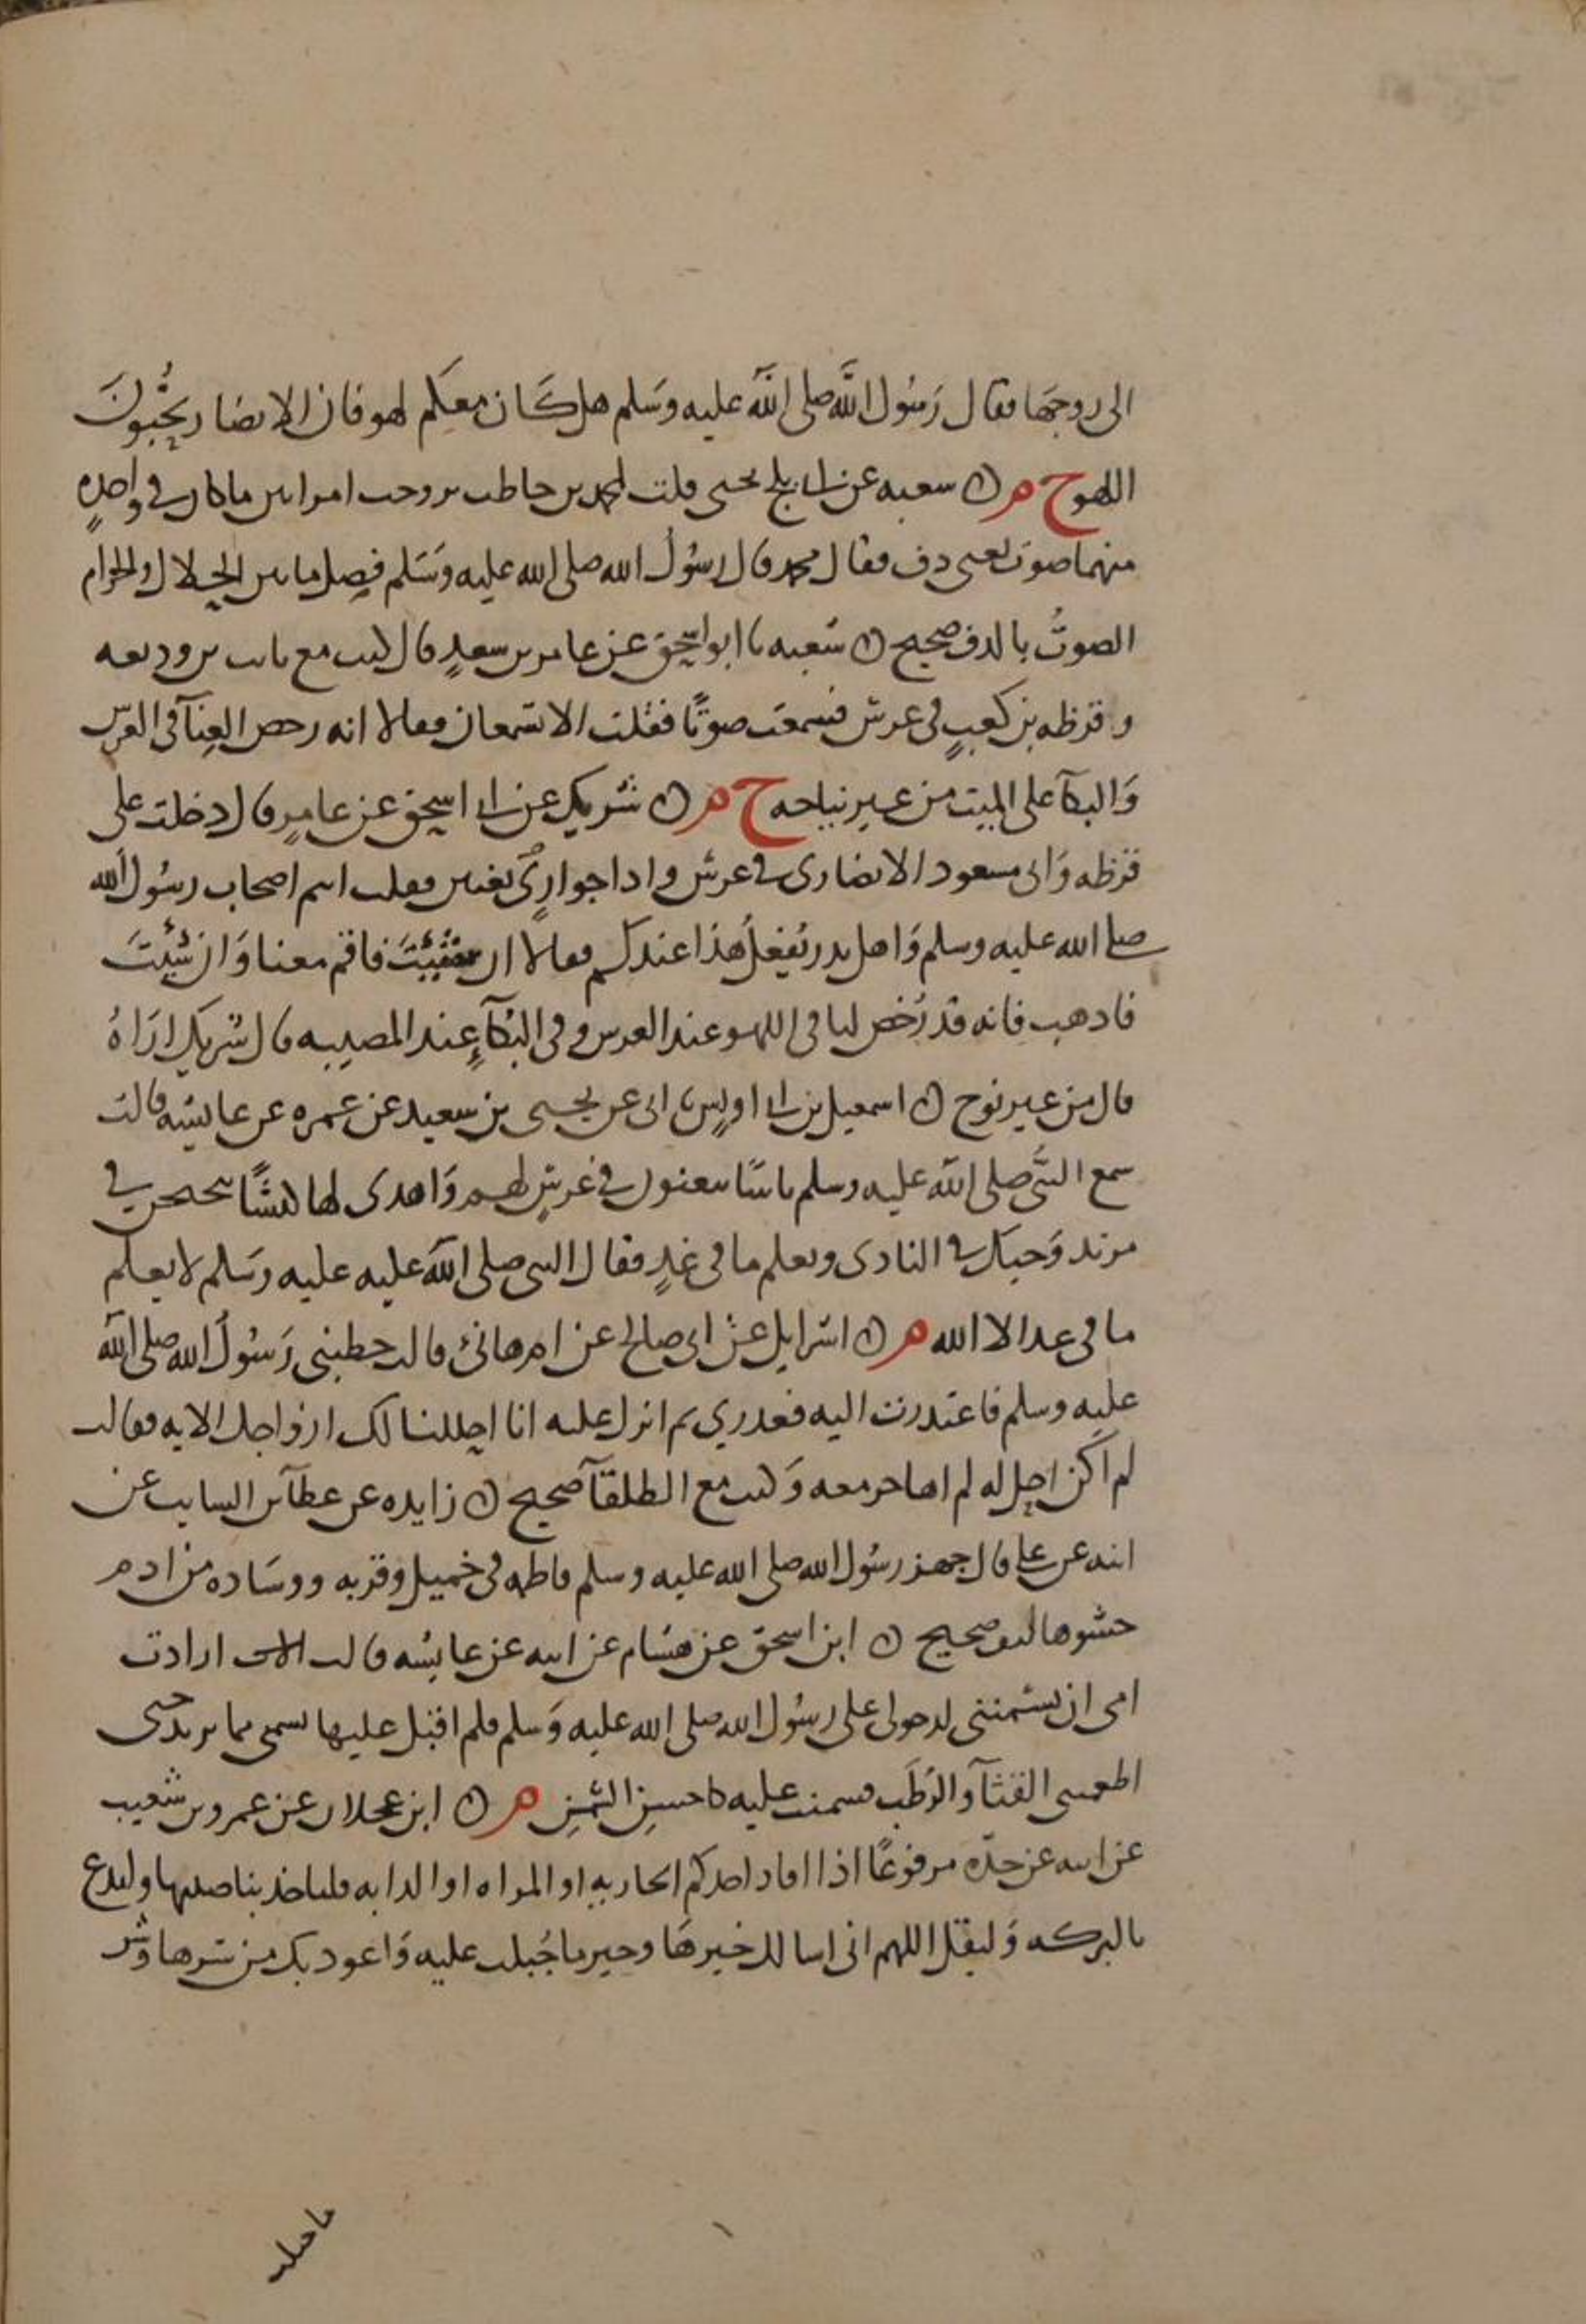 الى زوجها فقال رَسُول اللَّه صلى اللَّه عليه وسَلم هل كَان معكم لهو فان الانصار يحُبّونَ
اللهو خ م ن شعبه عن ابى بلج يحيى قلت لمحمد بن حاطب تزوجت امراتين ما كان فى واحدةٍ
منهما صوت يعنى دف فقال محمد قال رسُولُ الله صلى الله عليه وسَلم فصل ما بين الحلال والحرام
الصوتُ بالدف صحيح ن شعبه نا ابو اسحق عن عامر بن سعدٍ قال كنت مع ثابت بن وديعه
وقرظه بن كعبٍ فى عرس فسمعت صوتًا فقلت الا تسمعان فقالا انه رخص الغنآ فى العرس
وَالبكآ على الميت من غير نياحه خ م ن شريك عن ابى اسحق عن عامرٍ قال دخلت على
قرظه وَابى مسعود الانصارى فى عرس واذا جوارٍى يغنين فقلت انتم اصحاب رسُول الله
صلى الله عليه وسلم وَاهل بدر يُفعلُ هَذا عندكم فقالا ان شئِتَ فاقم معنا وَان شئِتَ
فاذهب فانه قد رُخص لنا فى اللهو عند العرس وفى البُكآءِ عند المصيبه قال شريك ارَاهُ
قال من غير نوح ن اسمعيل بن ابى اويسٍ نا ابى عن يحيى بن سعيد عن عمره عن عايشه قالت
سمع النَّبى صلى اللَّه عليه وسلم ناسًا يغنون فى عُرسٍ لهم وَاهدى لها كبشًا يتحنحن فى
مربد وَحبك فى النادى ويعلم ما فى غدٍ فقال النبى صلى اللَّه عليه عليه وسَلم لا يعلم
ما فى غد الا الله م ن اسرايل عن ابى صالح عن ام هانئ قالت خطبنى رَسُولُ الله صلى اللَّه
عليه وسلم فاعتذرت اليه فعذرنى ثم انزل عليه انا احللنا لك ازواجك الايه فقالت
لم اكن احل له لم اهاجر معه وَكنت مع الطلقآ صحيح ن زايده عن عطآ بن السايب عن
ابيه عن على قال جهز رسُول الله صلى الله عليه وسلم فاطمه فى خميل وقربه ووسَاده من ادم
حشوها ليف صحيح ن ابن اسحق عن هشام عن ابيه عن عايشه قالت ارادت
امى ان تسمننى لدخولى على رسُول الله صلى الله عليه وَسلم فلم اقبل عليها بشى مما تريد حتى
اطعمتنى القثآ وَالرُطَب فسمنت عليه كاحسن السَّمِن م ن ابن عجلان عن عمرو بن شعيب
عن ابيه عن جدّه مرفوعًا اذا افاد احدكم الجاريه او المراه او الدابه فلياخذ بناصيتها وليدع
بالبركه وَليقل اللهم انى اسالك خيرهَا وخير ما جُبلت عليه وَاعوذ بك من شرها وشر
ما جبلت